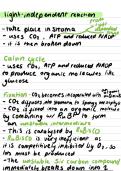 light-independent reaction
- take place in stroma
- uses CO₂, ATP and reduced NADP
- it is then broken down
Calvin cycle
- uses CO₂, ATP and reduced NADP
to produce organic molecules like
glucose
Fixation: CO₂ becomes incorporated with
- CO₂ diffuses into
- CO₂ is fixed into an organic molecule
by combining w/ RuBP to form
unstable intermediate
- This is catalysed by RuBisCO
- RuBisCO is very inefficient as
it is competitively inhibited by O₂. So
must be produced
- The unstable six carbon compound
immediately breaks down into 2